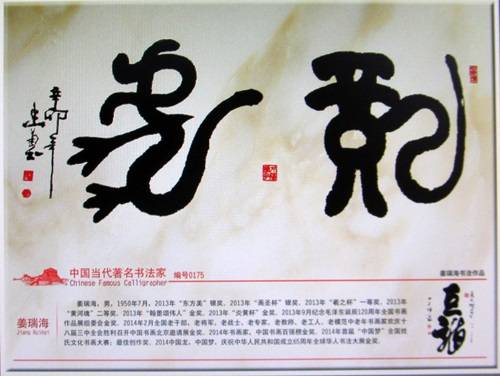 辛卯年
中国当代著名书法家 编号0175
Chinese Famous Calligrapher
姜瑞海书法作品
姜瑞海
Jiang Ruihai
姜瑞海,男,1950年7月,2013年“东方美”银奖,2013年“画圣杯”银奖、2013年“羲之杯”一等奖,2013年
“黄河魂”二等奖,2013年“翰墨颂伟人”金奖,2013年“炎黄杯”金奖,2013年9月纪念毛泽东诞辰120周年全国书画
作品展组委会金奖,2014年2月全国老干部、老将军、老战士、老专家、老教师、老工人、老模范中老年书画家欢庆十
八届三中全会胜利召开中国书画北京邀请展金奖,2014年书画家、中国书画百强榜金奖,2014年首届“中国梦”全国姓
氏文化书画大赛:最佳创作奖,2014中国龙、中国梦、庆祝中华人民共和国成立65周年全球华人书法大展金奖。
巨龍